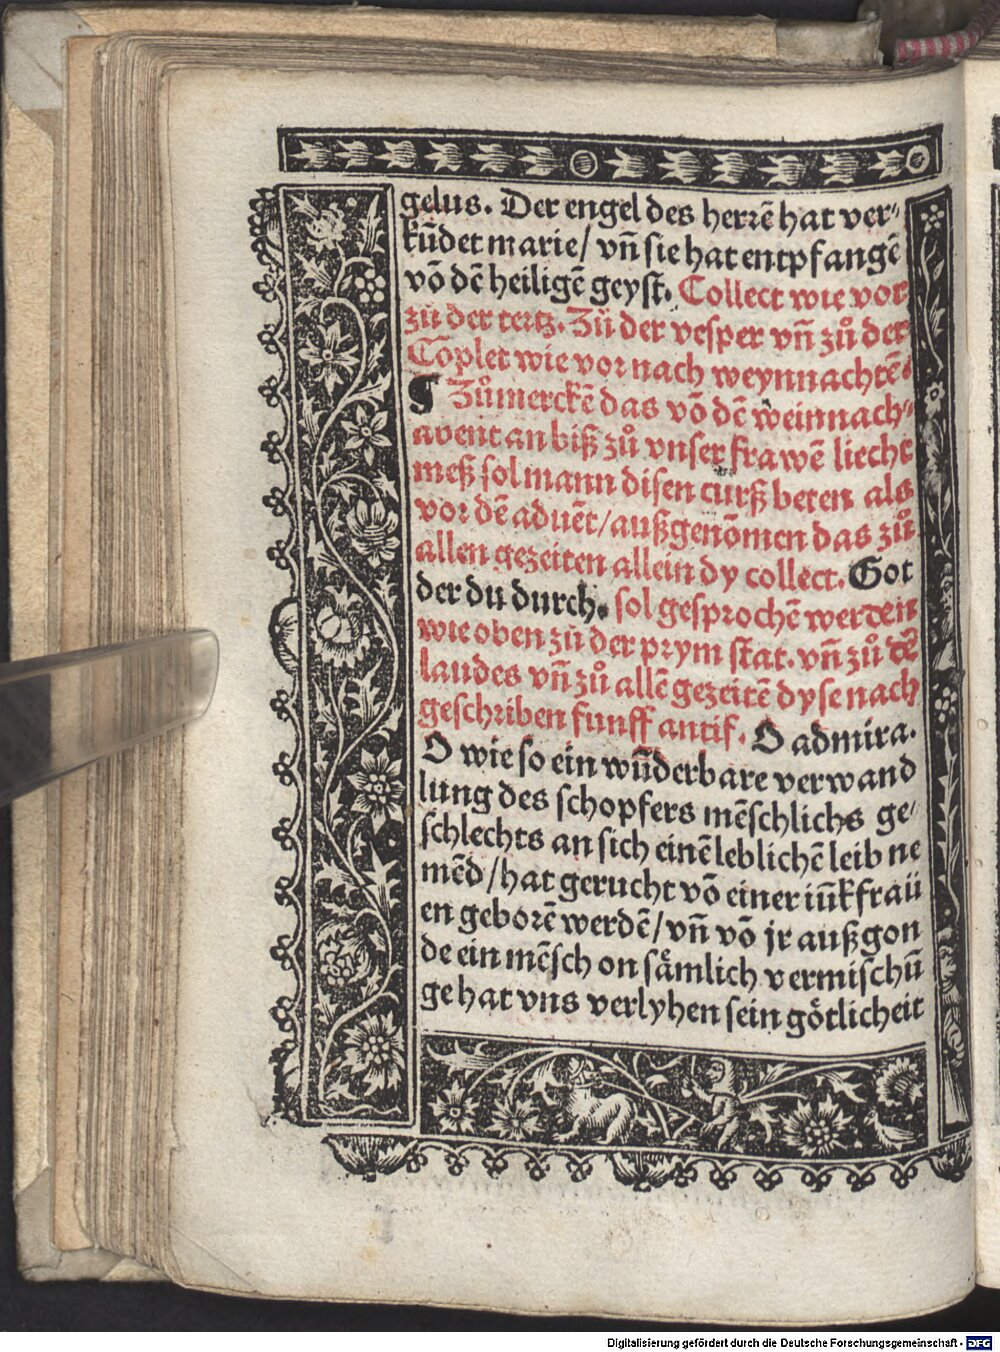 gelus. Der engel des herrē hat ver⸗
kūdet marie/ vn̄ sie hat entpfangē
vō dē heiligē geyst. Collect wie vor
zů der tertz. Zů der vesper vn̄ zů der
Cōplet wie vor nach weynnachtē.
¶ Zůmerckē das vō dē weinnach⸗
abent an biß zů vnser frawē liecht
meß sol mann disen curß beten als
vor dē aduēt/ außgenōmen das zů
allen gezeiten allein dy collect. Got
der du durch. sol gesprochē werden
wie oben zů der prym stat. vn̄ zů dē
laudes vn̄ zů allē gezeitē dyse nach
geschriben funff antif. O admira.
O wie so ein wūderbare verwand
lung des schopfers mēschlichs ge⸗
schlechts an sich einē leblichē leib ne
mēd/ hat gerucht vō einer iūkfraü
en geborē werdē/ vn̄ vō jr außgon
de ein mēsch on sämlich vermischū
ge hat vns verlyhen sein götlicheit
Digitalisierung gefördert durch die Deutsche Forschungsgemeinschaft - DFG